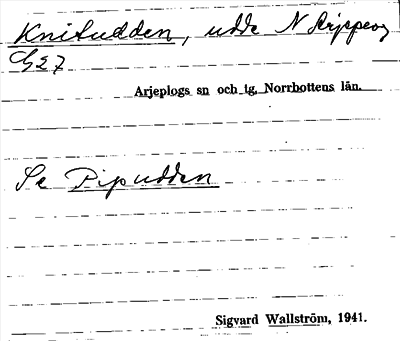 Knitudden, udde N Skippevg
G27
Arjeplogs sn och tg, Norrbottens län.
Se Pipudden
Sigvard Wallström, 1941.